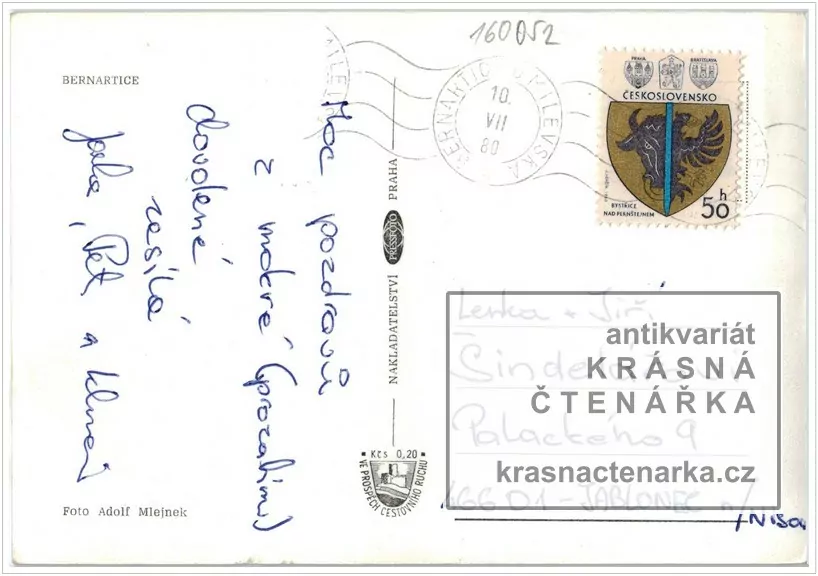 160052
BERNARTICE
Moc pozdravů
z mokré (prozatím)
dovolené
zasílá
Petr a
Foto Adolf Mlejnek
NAKLADATELSTVÍ PRESSFOTO PRAHA
Kčs 0,20
VE PROSPĚCH CESTOVNÍHO RUCHU
BERNARTICE U MILEVSKA
10.
VII
80
PRAHA
BRATISLAVA
ČESKOSLOVENSKO
BYSTŘICE
NAD PERNŠTEJNEM
50 h
Lenka + Jiří
Šindelářovi
Palackého 9
466 01 - JABLONEC n/
/Nisou
antikvariát
KRÁSNÁ
ČTENÁŘKA
krasnactenarka.cz